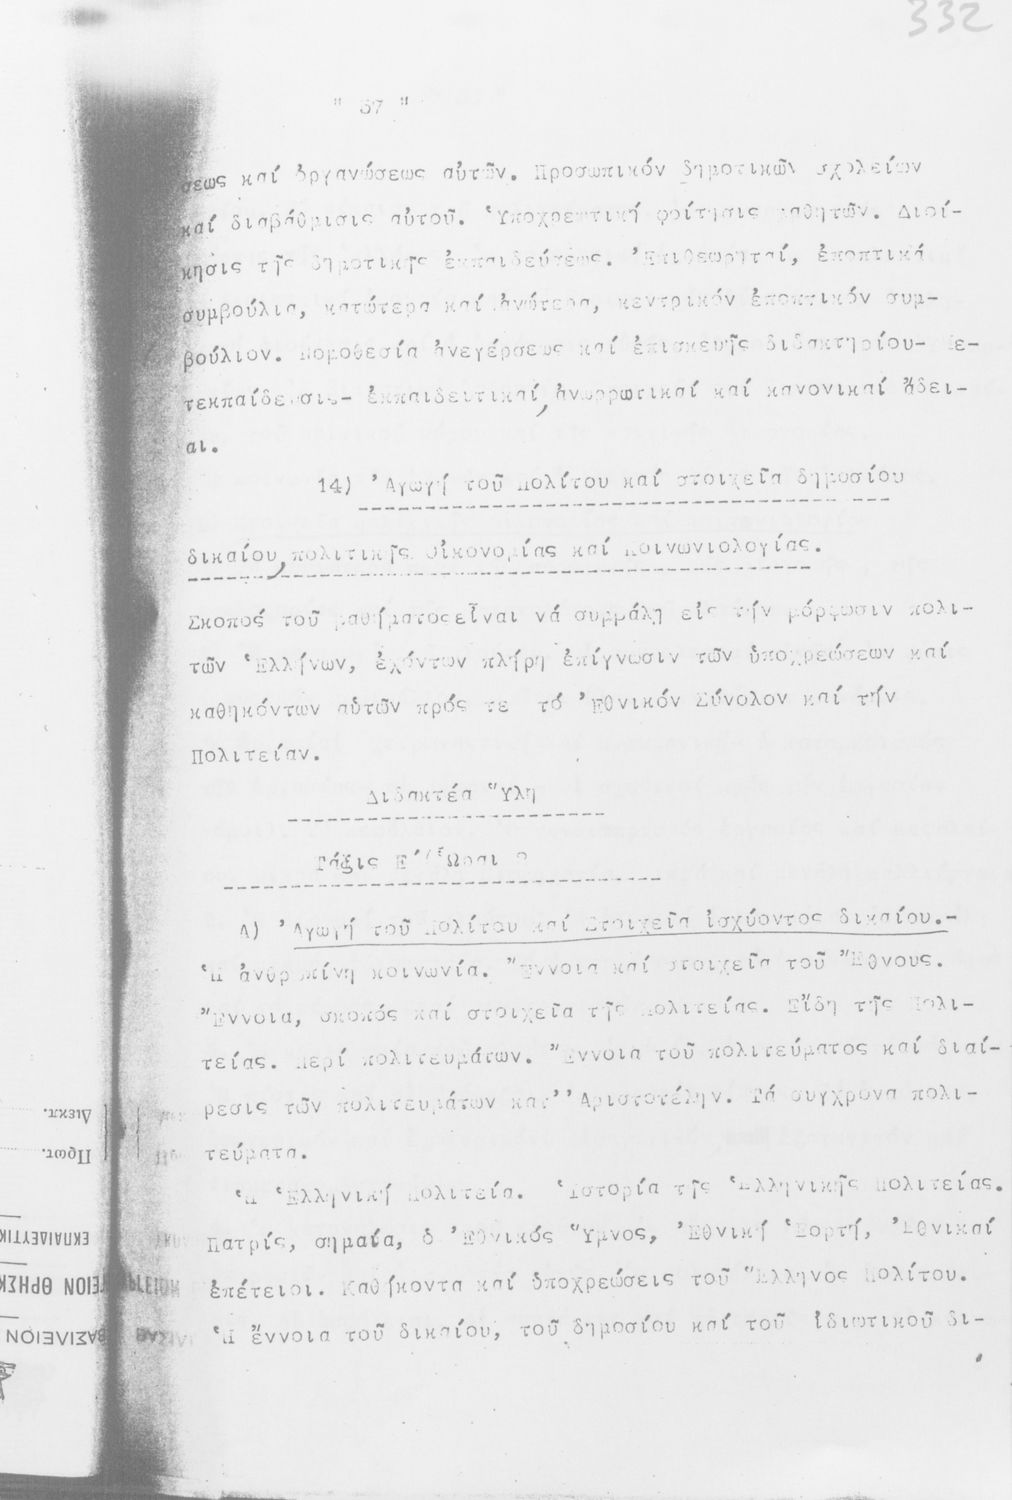 332
" 57 "
σεως καί ὀργανώσεως αὐτῶν. Προσωπικόν δημοτικῶν σχολείων
καί διαβάθμισις αὐτοῦ. Ὑποχρεωτική φοίτησις μαθητῶν. Διοί-
κησις τῆς δημοτικῆς ἐκπαιδεύσεως. Ἐπιθεωρηταί, ἐποπτικά
συμβούλια, κατώτερα καί ἀνώτερα, κεντρικόν ἐποπτικόν συμ-
βούλιον. Νομοθεσία ἀνεγέρσεως καί ἐπισκευῆς διδακτηρίου- Με-
τεκπαίδευσις- ἐκπαιδευτικαί, ἀναρρωτικαί καί κανονικαί ἄδει-
αι.
14) Ἀγωγή τοῦ Πολίτου καί στοιχεῖα δημοσίου
δικαίου, πολιτικῆς Οἰκονομίας καί Κοινωνιολογίας.
Σκοπός τοῦ μαθήματος εἶναι νά συμβάλη εἰς τήν μόρφωσιν πολι-
τῶν Ἑλλήνων, ἐχόντων πλήρη ἐπίγνωσιν τῶν ὑποχρεώσεων καί
καθηκόντων αὐτῶν πρός τε τό Ἐθνικόν Σύνολον καί τήν
Πολιτείαν.
Διδακτέα Ὕλη
Τάξις Ε´ Ὧραι 2
Α) Ἀγωγή τοῦ Πολίτου καί Στοιχεῖα ἰσχύοντος δικαίου.-
Ἡ ἀνθρωπίνη κοινωνία. Ἔννοια καί στοιχεῖα τοῦ Ἔθνους.
Ἔννοια, σκοπός καί στοιχεῖα τῆς Πολιτείας. Εἴδη τῆς Πολι-
τείας. Περί πολιτευμάτων. Ἔννοια τοῦ πολιτεύματος καί διαί-
ρεσις τῶν πολιτευμάτων κατ' Ἀριστοτέλην. Τά συγχρονα πολι-
τεύματα.
Ἡ Ἑλληνική Πολιτεία. Ἱστορία τῆς Ἑλληνικῆς Πολιτείας.
Πατρίς, σημαία, ὁ Ἐθνικός Ὕμνος, Ἐθνική Ἑορτή, Ἐθνικαί
ἐπέτειοι. Καθήκοντα καί ὑποχρεώσεις τοῦ Ἕλληνος Πολίτου.
Ἡ ἔννοια τοῦ δικαίου, τοῦ δημοσίου καί τοῦ ἰδιωτικοῦ δι-
ΒΑΣΙΛΕΙΟΝ
ΘΡΗΣΚ
ΕΚΠΑΙΔΕΥΤΙΚ
Πρωτ.
Διεκπ.